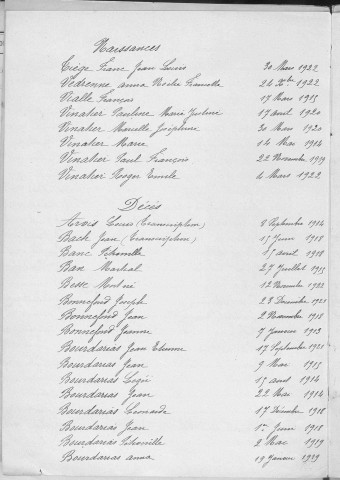 Naissances
Liège Franc Jean Louis 30 Mars 1922
Vedrenne Anna Noélie 24 Xbre 1922
Vialle François 17 Mars 1915
Vinatier Pauline Marie 17 avril 1920
Vinatier Marcelle Joséphine 30 Mars 1920
Vinatier Marie 14 Mai 1914
Vinatier Paul François 22 Novembre 1919
Vinatier Roger Emile 4 Mars 1922
Décès
Arvis Louis (transcription) 8 Septembre 1914
Bach Jean (transcription) 15 Juin 1918
Banc Pétronille 15 avril 1918
Ban Martial 27 Juillet 1915
Besse 12 Novembre 1922
Bonnefond Joseph 28 Décembre 1921
Bonnefond Jean 2 Novembre 1918
Bonnefond Jeanne 7 Janvier 1913
Bourdarias Jean Etienne 17 Septembre 1921
Bourdarias Jean 9 Mai 1915
Bourdarias 15 avril 1914
Bourdarias Jean 22 Mai 1914
Bourdarias Léonarde 17 Décembre 1918
Bourdarias Jean 1er Juin 1918
Bourdarias Pétronille 2 Mai 1919
Bourdarias Anna 19 Janvier 1919